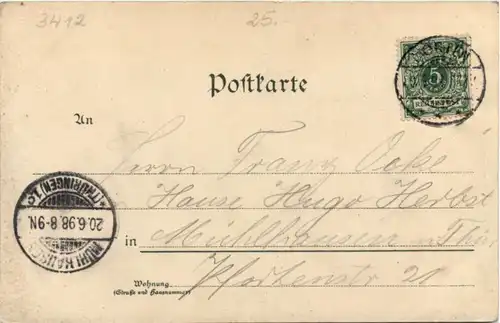 3412 25.
Postkarte
NÖRTEN
5
REICHSPOST
An
Herrn Franz Ocke
Hause Hugo Herbst
in Mühlhausen i. Thür
Pfortenstr 20
Wohnung
(Straße und Hausnummer)
MÜHLHAUSEN
(THÜRINGEN) 1.
20.6.98. 8-9N.